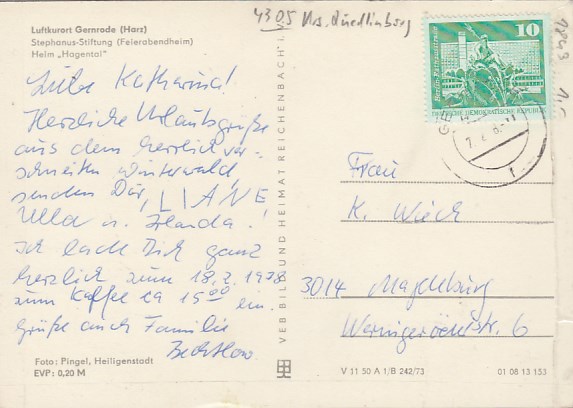 4305 Krs. Quedlinburg
Luftkurort Gernrode (Harz)
Stephanus-Stiftung (Feierabendheim)
Heim „Hagental"
Liebe Katharina!
Herzliche Urlaubsgrüße
aus dem herrlich ver-
schneiten Winterwald
senden Dir, LIANE
Ulla u. Irlanda!
Ich lade Dich ganz
herzlich zum 18.2.1978
zum Kaffee ca 15⁰⁰ ein.
Grüße auch Familie
Foto: Pingel, Heiligenstadt
EVP: 0,20 M
VEB BILD UND HEIMAT REICHENBACH i. V.
10
DEUTSCHE DEMOKRATISCHE REPUBLIK
Frau
K. Wieck
3014 Magdeburg
Werningeröderstr. 6
V 11 50 A 1/B 242/73
01 08 13 153